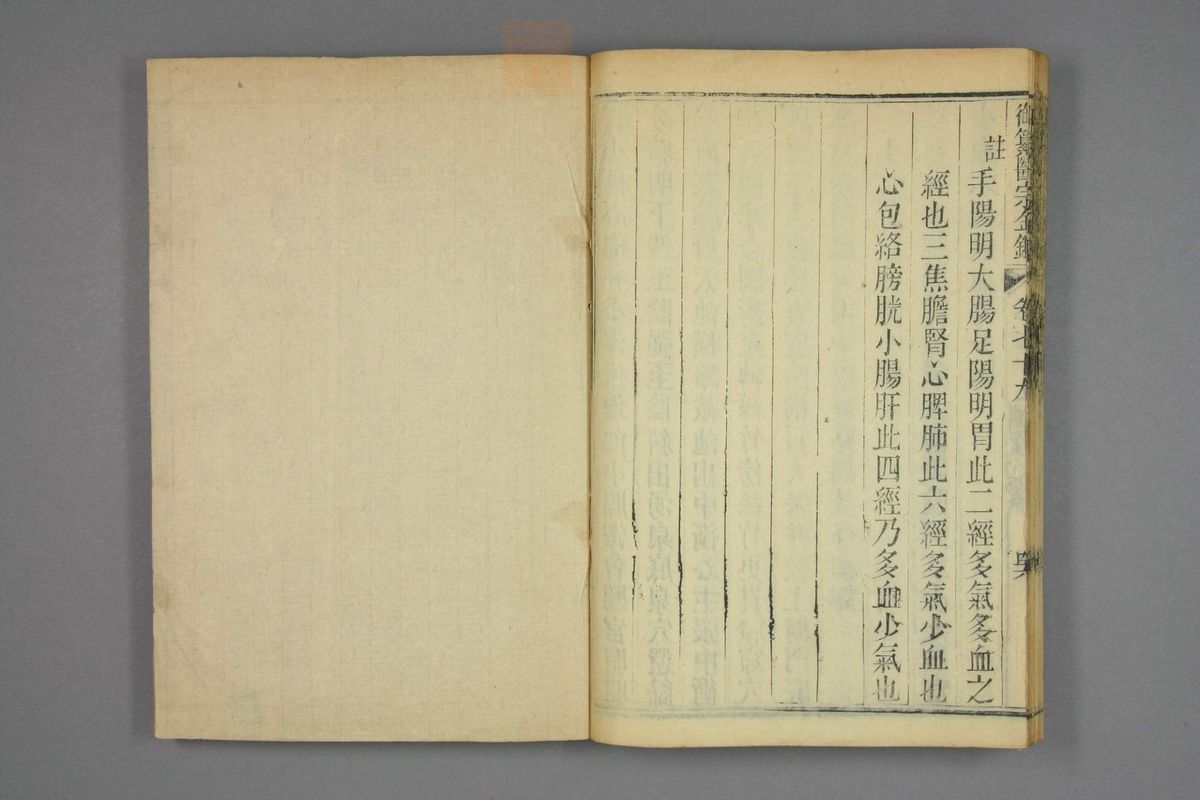 御纂醫宗金鑑 卷七十九
註
手陽明大腸足陽明胃此二經多氣多血之
經也三焦膽腎心脾肺此六經多氣少血也
心包絡膀胱小腸肝此四經乃多血少氣也